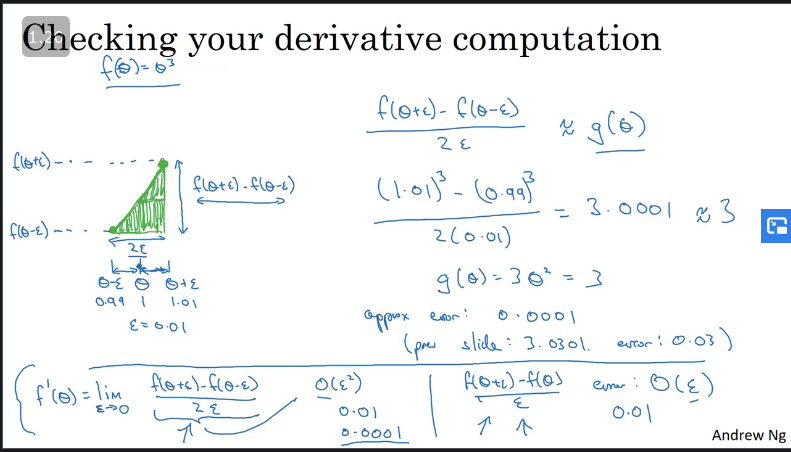 Checking your derivative computation
f(θ) = θ³
f(θ+ε)
f(θ-ε)
f(θ+ε) - f(θ-ε)
2ε
θ-ε θ θ+ε
0.99 1 1.01
ε = 0.01
f(θ+ε) - f(θ-ε) / 2ε ≈ g(θ)
(1.01)³ - (0.99)³ / 2(0.01) = 3.0001 ≈ 3
g(θ) = 3θ² = 3
approx error: 0.0001
(prev slide: 3.0301. error: 0.03)
f'(θ) = lim ε→0 f(θ+ε) - f(θ-ε) / 2ε O(ε²)
0.01
0.0001
f(θ+ε) - f(θ) / ε error: O(ε)
0.01
Andrew Ng